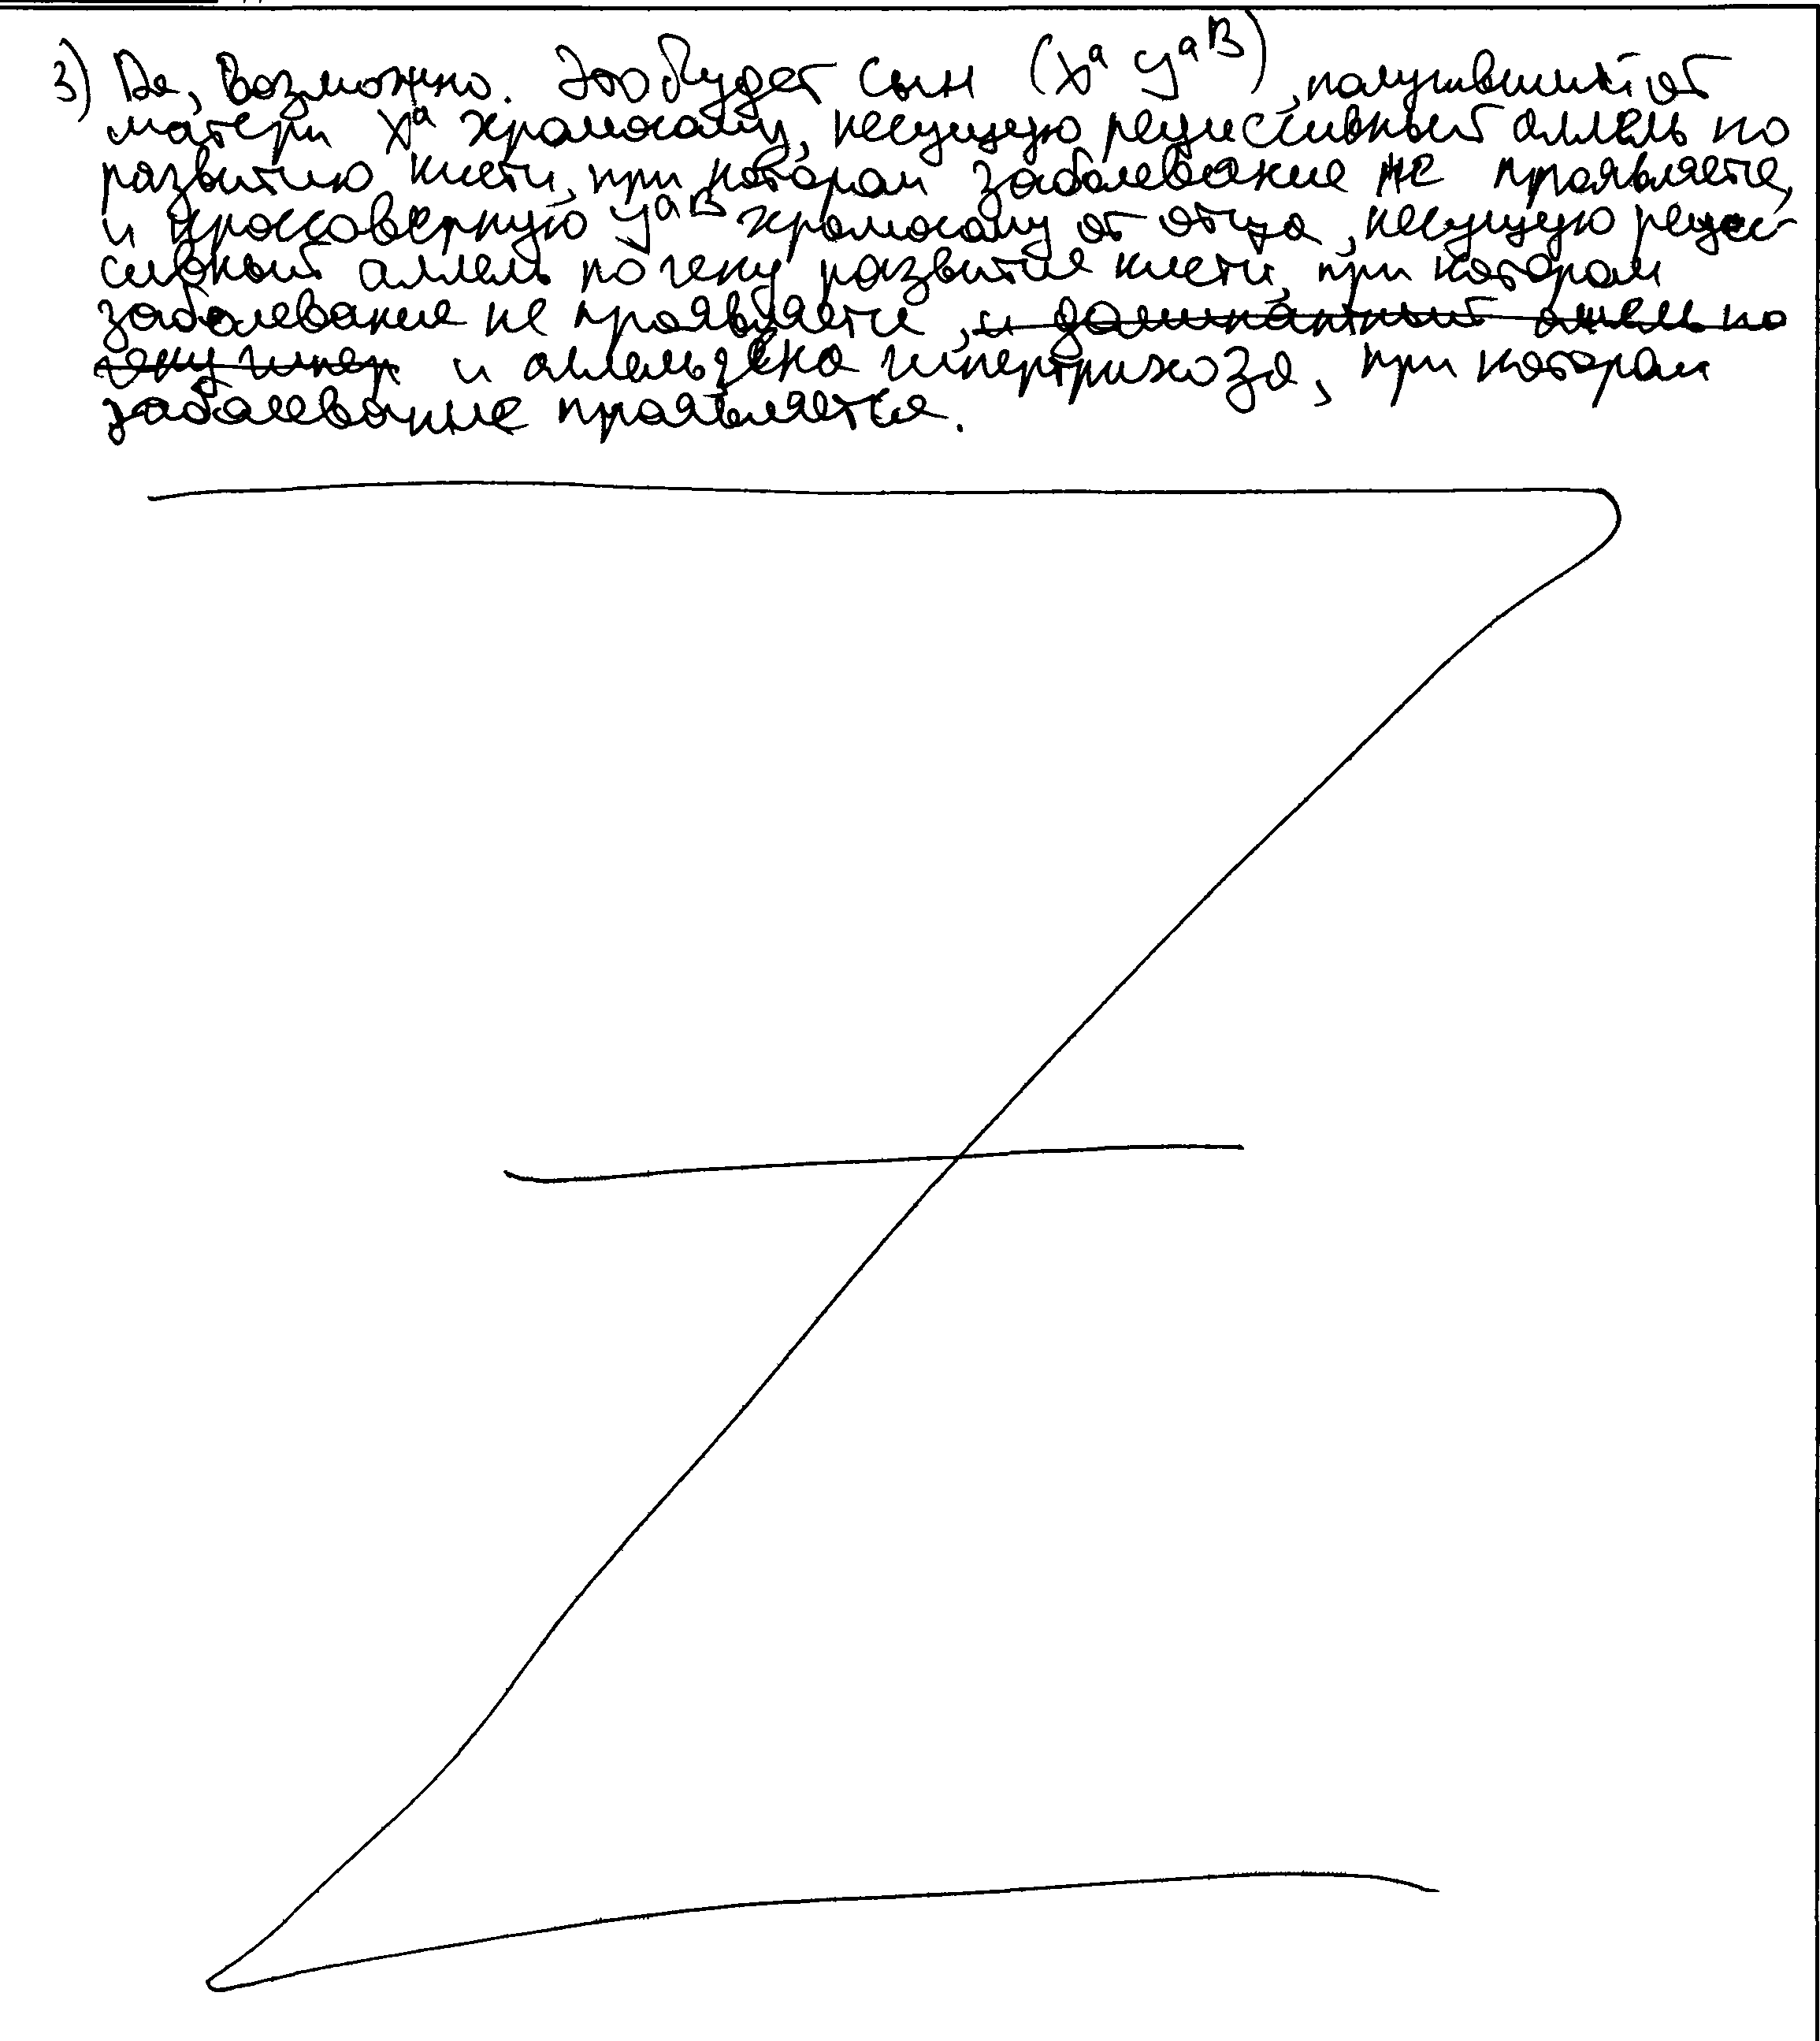 3) Да, возможно. Это будет сын (Xᵃ Yᵃᴮ), получивший от
матери Xᵃ хромосому, несущую рецессивный аллель по
развитию кисти, при котором заболевание не проявляется,
и кроссоверную Yᵃᴮ хромосому от отца, несущую рецес-
сивный аллель по гену развития кисти, при котором
заболевание не проявляется, и доминантный аллель по
гену гипер и аллель гена гипертрихоза, при котором
заболевание проявляется.